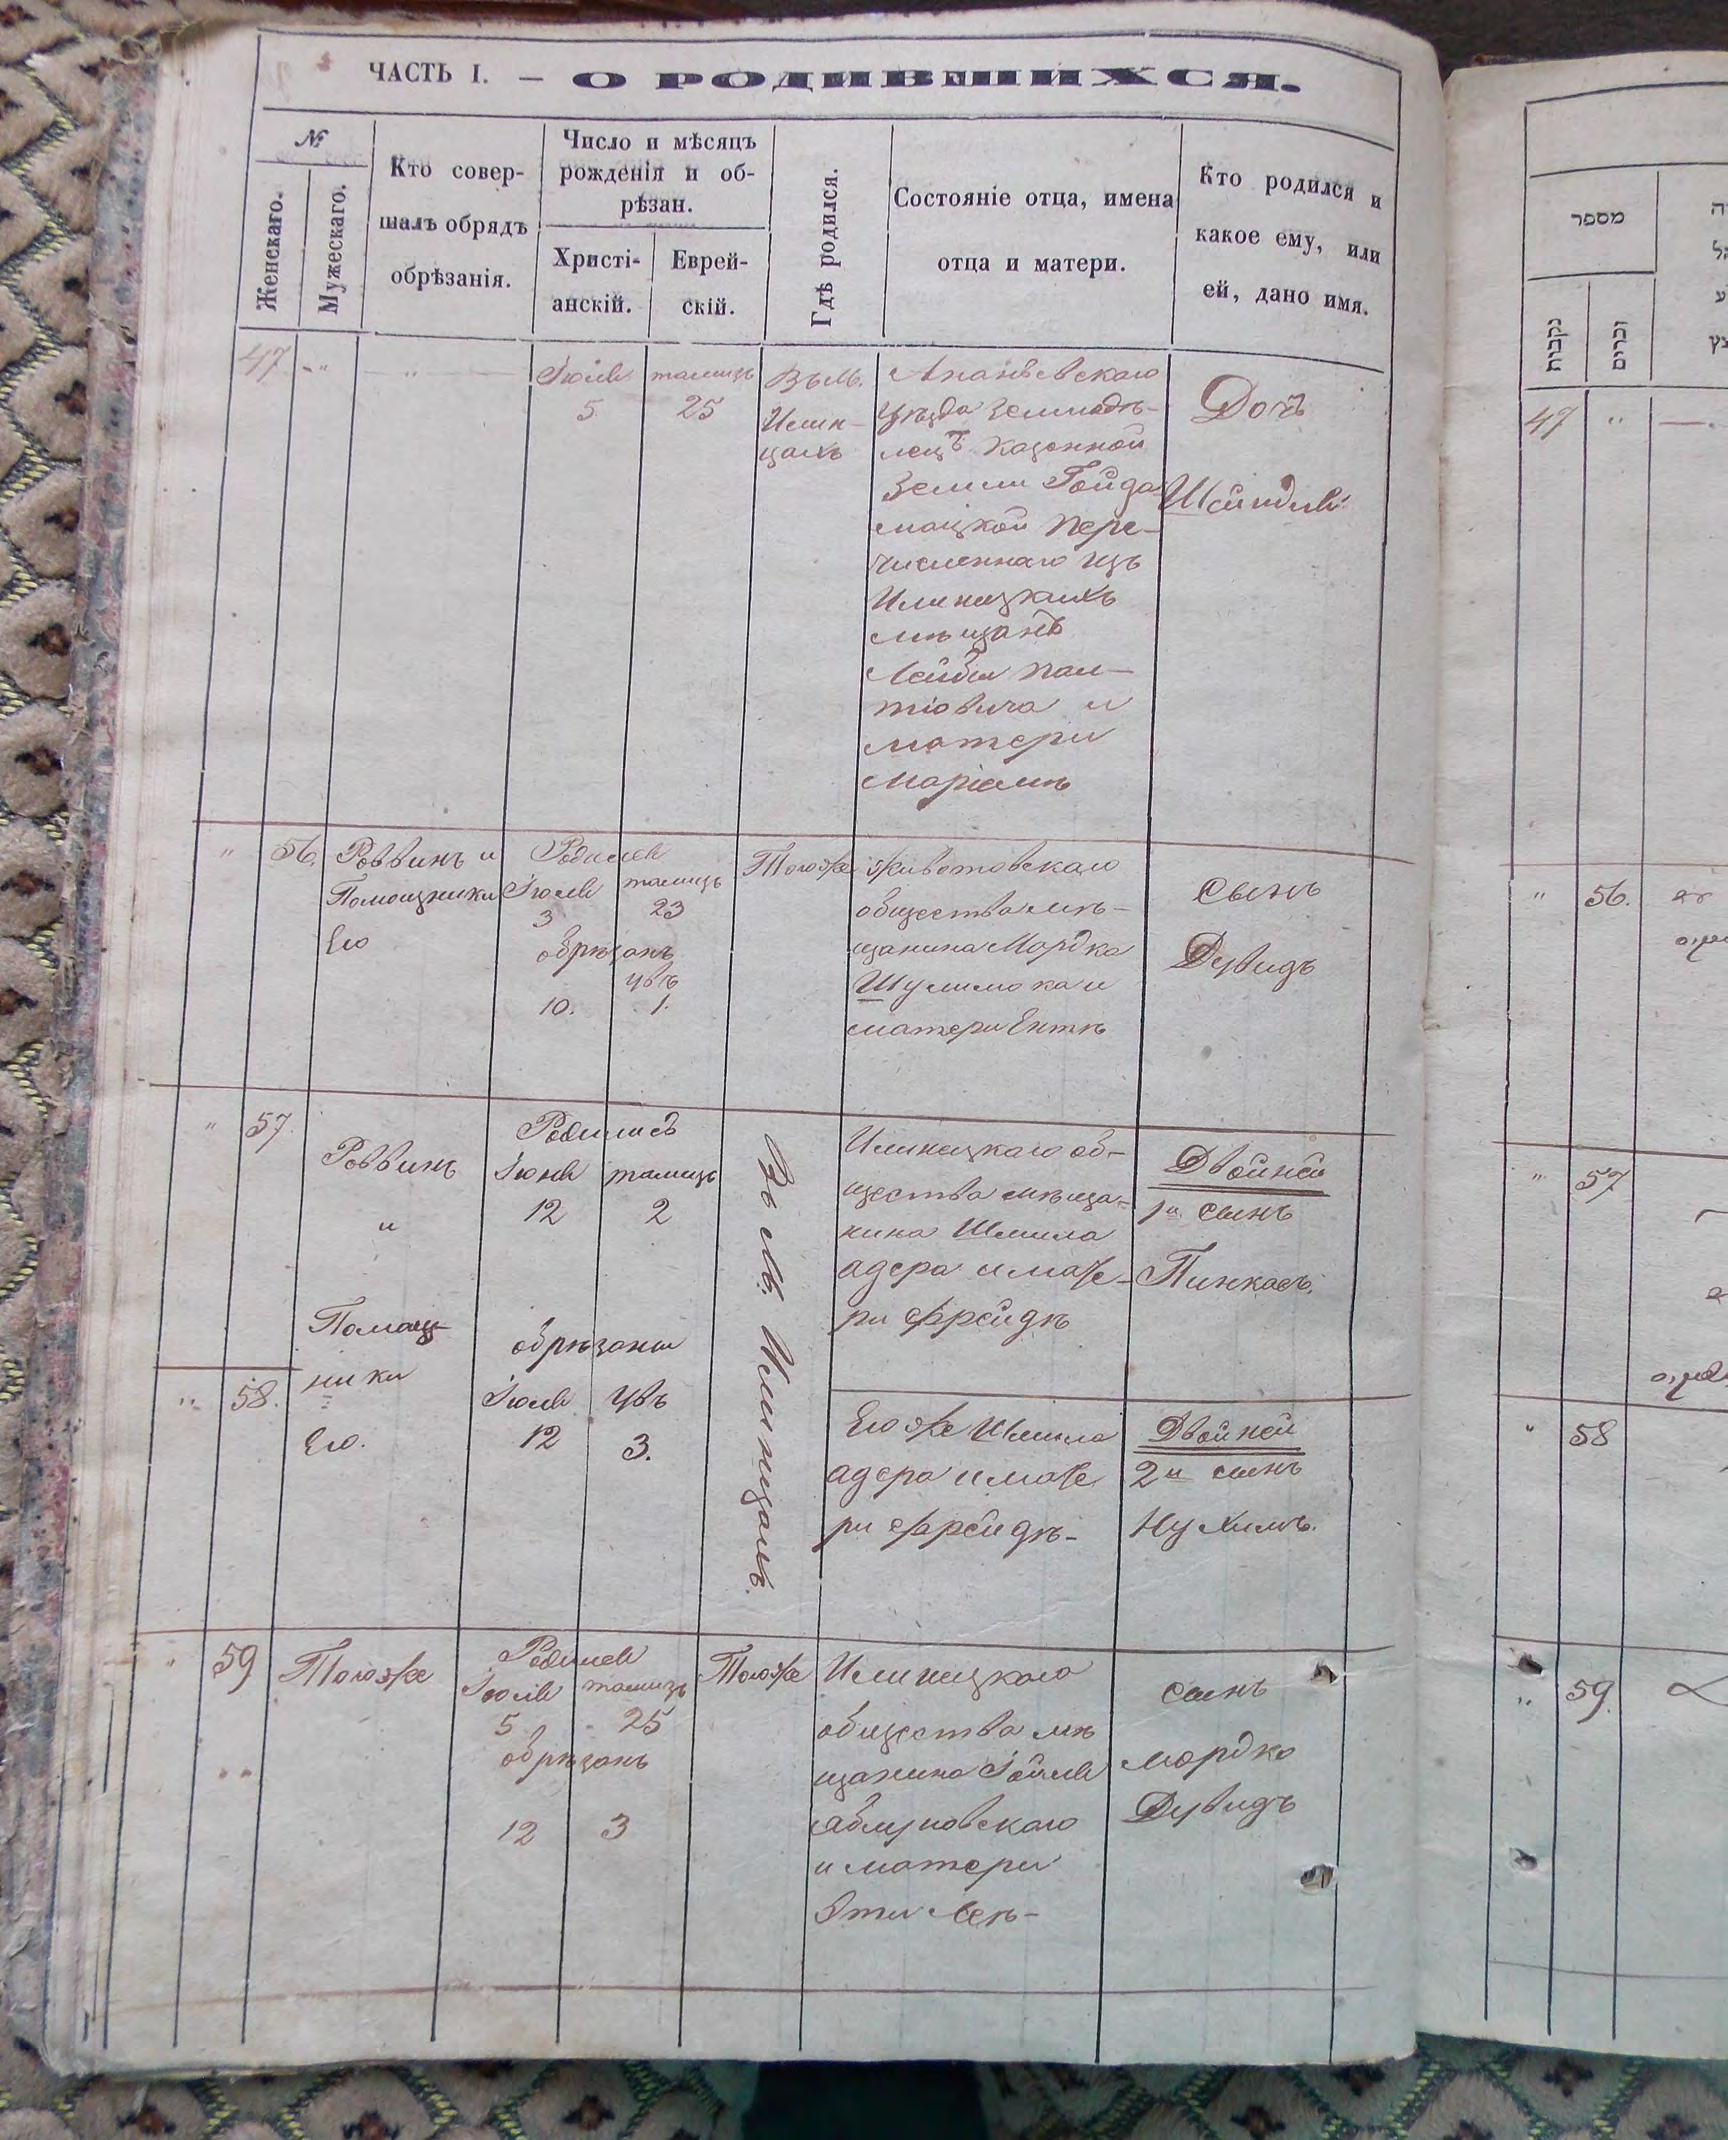 ЧАСТЬ I. — О РОДИВШИХСЯ.
№
Женскаго.
Мужескаго.
Кто совер-
шалъ обрядъ
обрѣзанія.
Число и мѣсяцъ
рожденія и об-
рѣзан.
Христі-
анскій.
Еврей-
скій.
Гдѣ родился.
Состояніе отца, имена
отца и матери.
Кто родился и
какое ему, или
ей, дано имя.
47
Іюля
5
тамизъ
25
Въ м.
Илин-
цахъ
Ананьевскаго
уѣзда земледѣ-
лецъ казенной
земли Гойда
мацкой пере-
численнаго изъ
Илинецкихъ
мѣщанъ
Лейбы
и
матери
Маріамъ
Дочь
Шейндля
56.
Раввинъ и
Помощники
Его
Родился
Іюля тамизъ
3 23
обрѣзанъ
увъ
10. 1.
Тогоже
Животовскаго
общества мѣ-
щанина Мордка
Шулимока и
матери Ентѣ
Сынъ
Дувидъ
57.
Раввинъ
и
Помощ-
ники
Его.
Родились
Іюня тамизъ
12 2
обрѣзаны
Іюля увъ
12 3.
Въ м. Илинцахъ.
Илинецкаго об-
щества мѣща-
нина Шмила
адера и мате-
ри Фрейдѣ
Двойней
1й сынъ
Пинкасъ.
58.
Егоже Шмила
адера и мате
ри Фрейдѣ-
Двойней
2й сынъ
Нухимъ.
59
Тогоже
Родился
Іюля тамизъ
5 25
обрѣзанъ
12 3
Тогоже
Илинецкаго
общества мѣ
щанина Іойля
Яблуновскаго
и матери
Эти Леѣ-
сынъ
мордко
Дувидъ
מספר
נקבות
זכרים
47
56.
57
58
59.